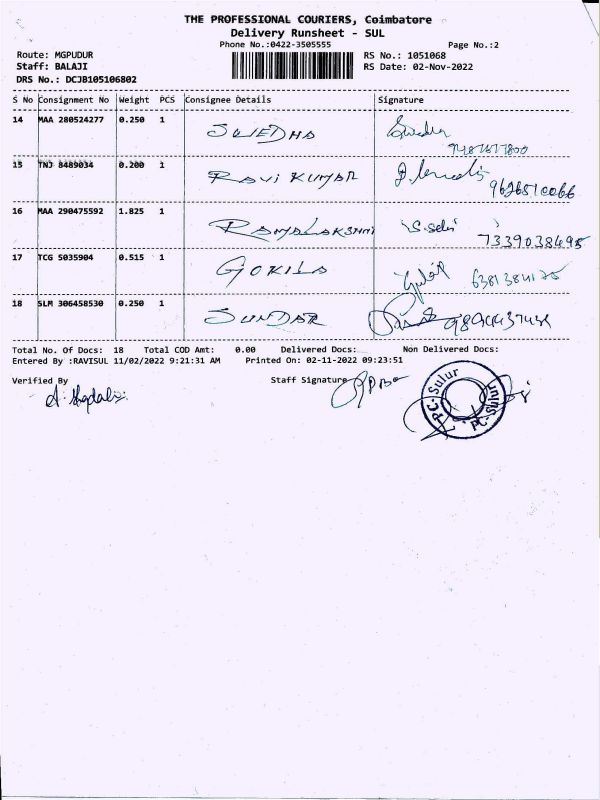 THE PROFESSIONAL COURIERS, Coimbatore
Delivery Runsheet - SUL
Phone No.:0422-3505555 Page No.:2
Route: MGPUDUR RS No.: 1051068
Staff: BALAJI RS Date: 02-Nov-2022
DRS No.: DCJB105106802
S No Consignment No Weight PCS Consignee Details Signature
14 MAA 280524277 0.250 1 SWEDHA
15 TNJ 8489034 0.200 1 RAVI KUMAR 9626510066
16 MAA 290475592 1.825 1 RAMALAKSHMI S.selvi 7339038495
17 TCG 5035904 0.515 1 GOKILA
18 SLM 306458530 0.250 1 SUNDAR
Total No. Of Docs: 18 Total COD Amt: 0.00 Delivered Docs: Non Delivered Docs:
Entered By :RAVISUL 11/02/2022 9:21:31 AM Printed On: 02-11-2022 09:23:51
Verified By Staff Signature
PC-Sulur
PC-Sulur